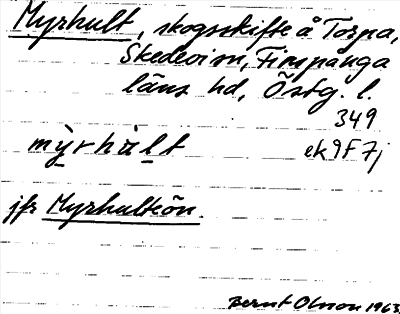 Myrhult, skogsskifte å Torpa,
Skedevi sn, Finspånga
läns hd, Östg. l.
349
mỳrhàlt ek9F7j
jfr Myrhultsön.
Bernt Olsson 1963.